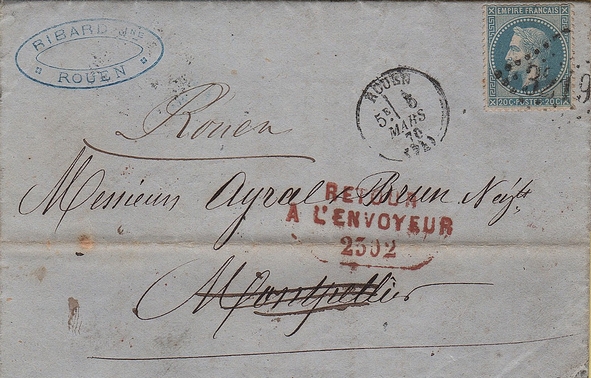 RIBARD
ROUEN
EMPIRE FRANÇAIS
20C POSTES 20C
ROUEN
5E
5
MARS
70
(74)
Rouen
Messieurs Ayral & Brun Negts
RETOUR
A L'ENVOYEUR
2502
Montpellier